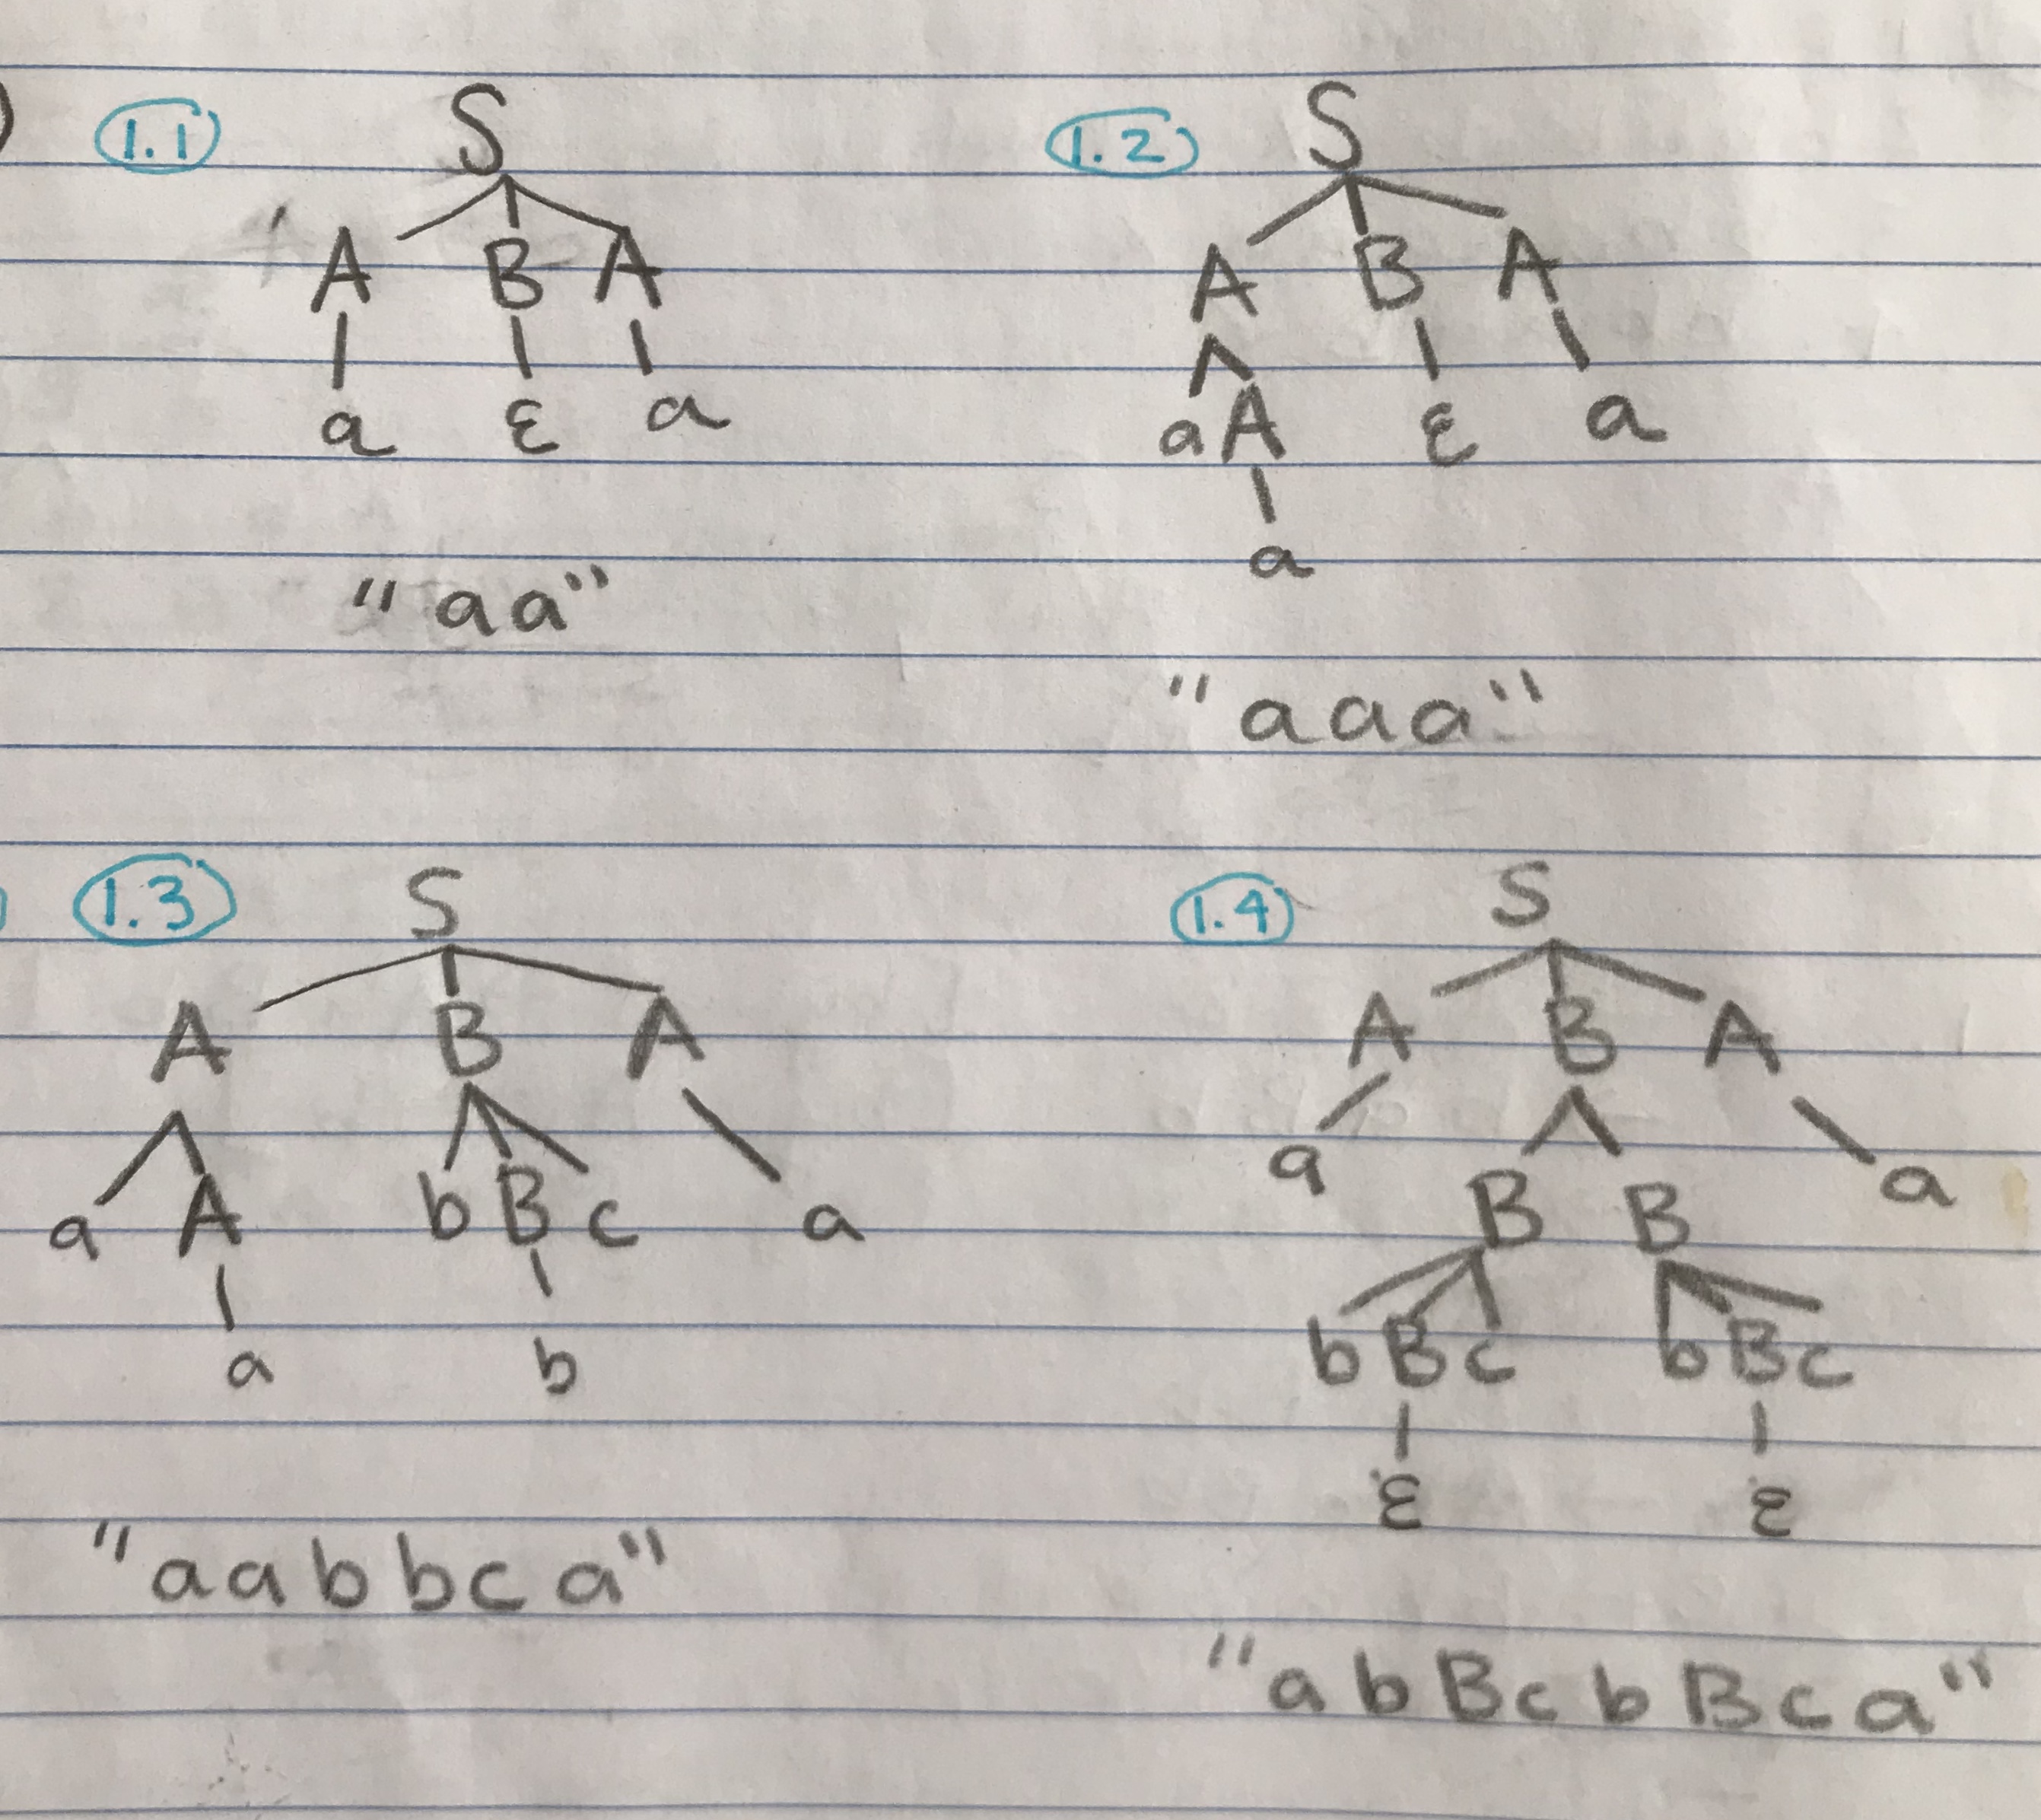 1.1 S
A B A
a ε a
"aa"
1.2 S
A B A
a A ε a
a
"aaa"
1.3 S
A B A
a A b B c a
a b
"aabbca"
1.4 S
A B A
a B B a
b B c b B c
ε ε
"abBcbBca"